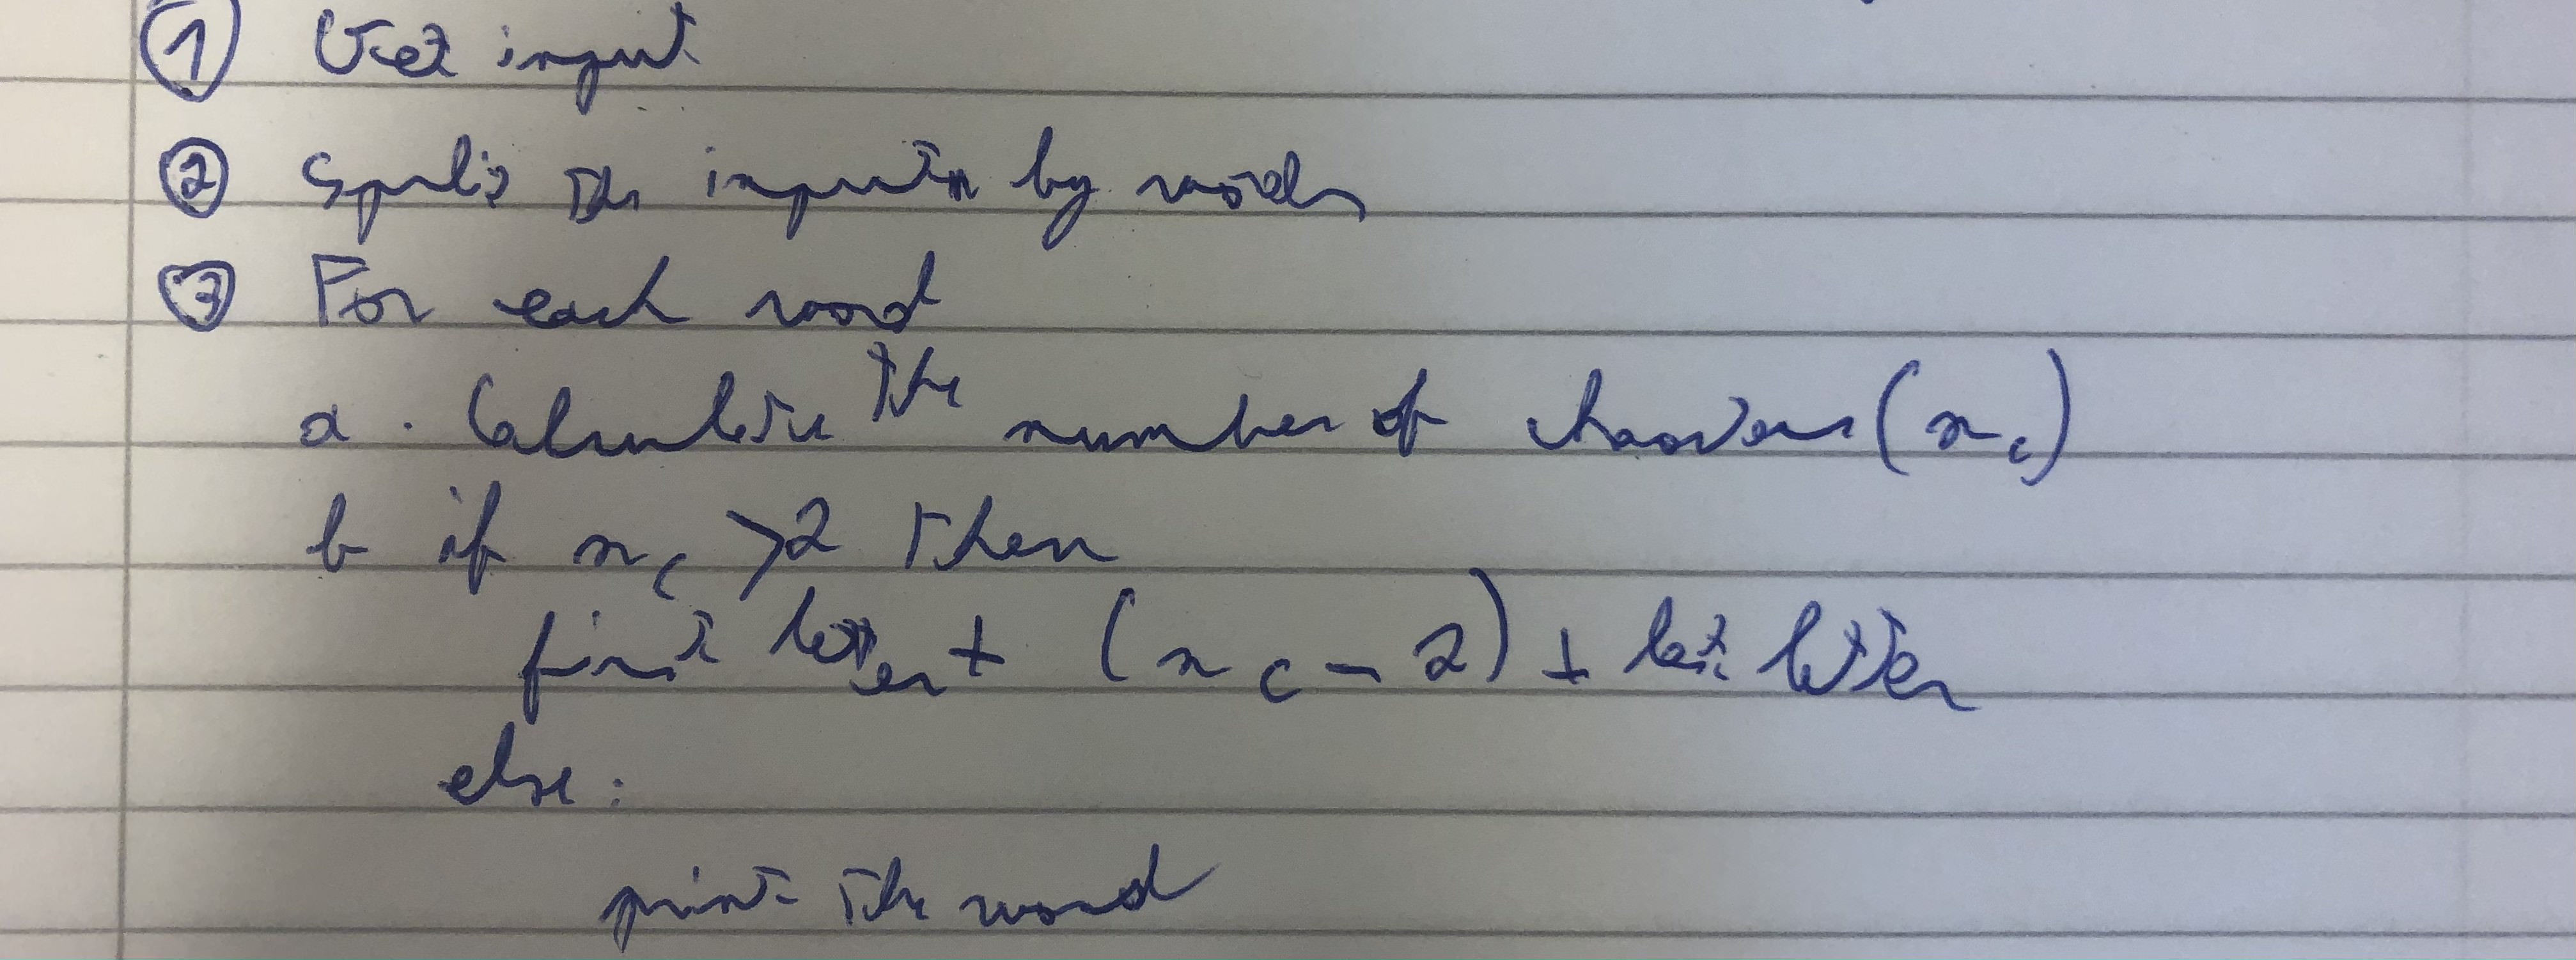 ① Get input
② Split the input by words
③ For each word
a. Calculate the number of characters (n_c)
b if n_c > 2 then
first letter + (n_c - 2) + last letter
else:
print the word